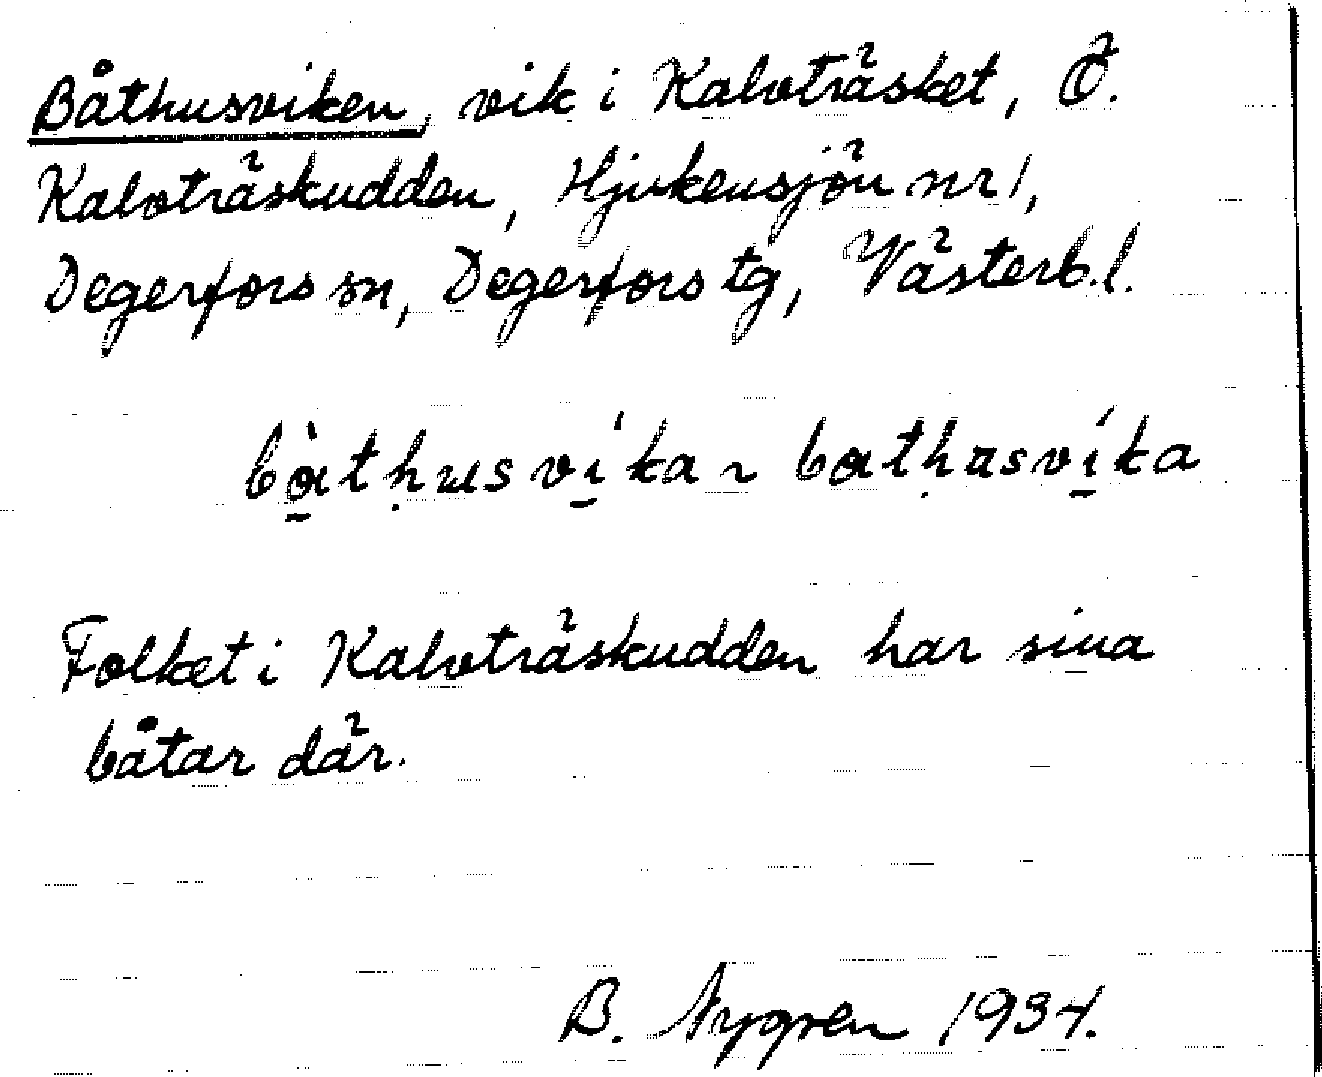 Båthusviken, vik i Kalvträsket, Ö.
Kalvträskudden, Hjukensjön nr 1,
Degerfors sn, Degerfors tg, Västerb. l.
bå̀tḥusvi̱ka ~ batḥusví̱ka
Folket i Kalvträskudden har sina
båtar där.
B. Nygren 1934.